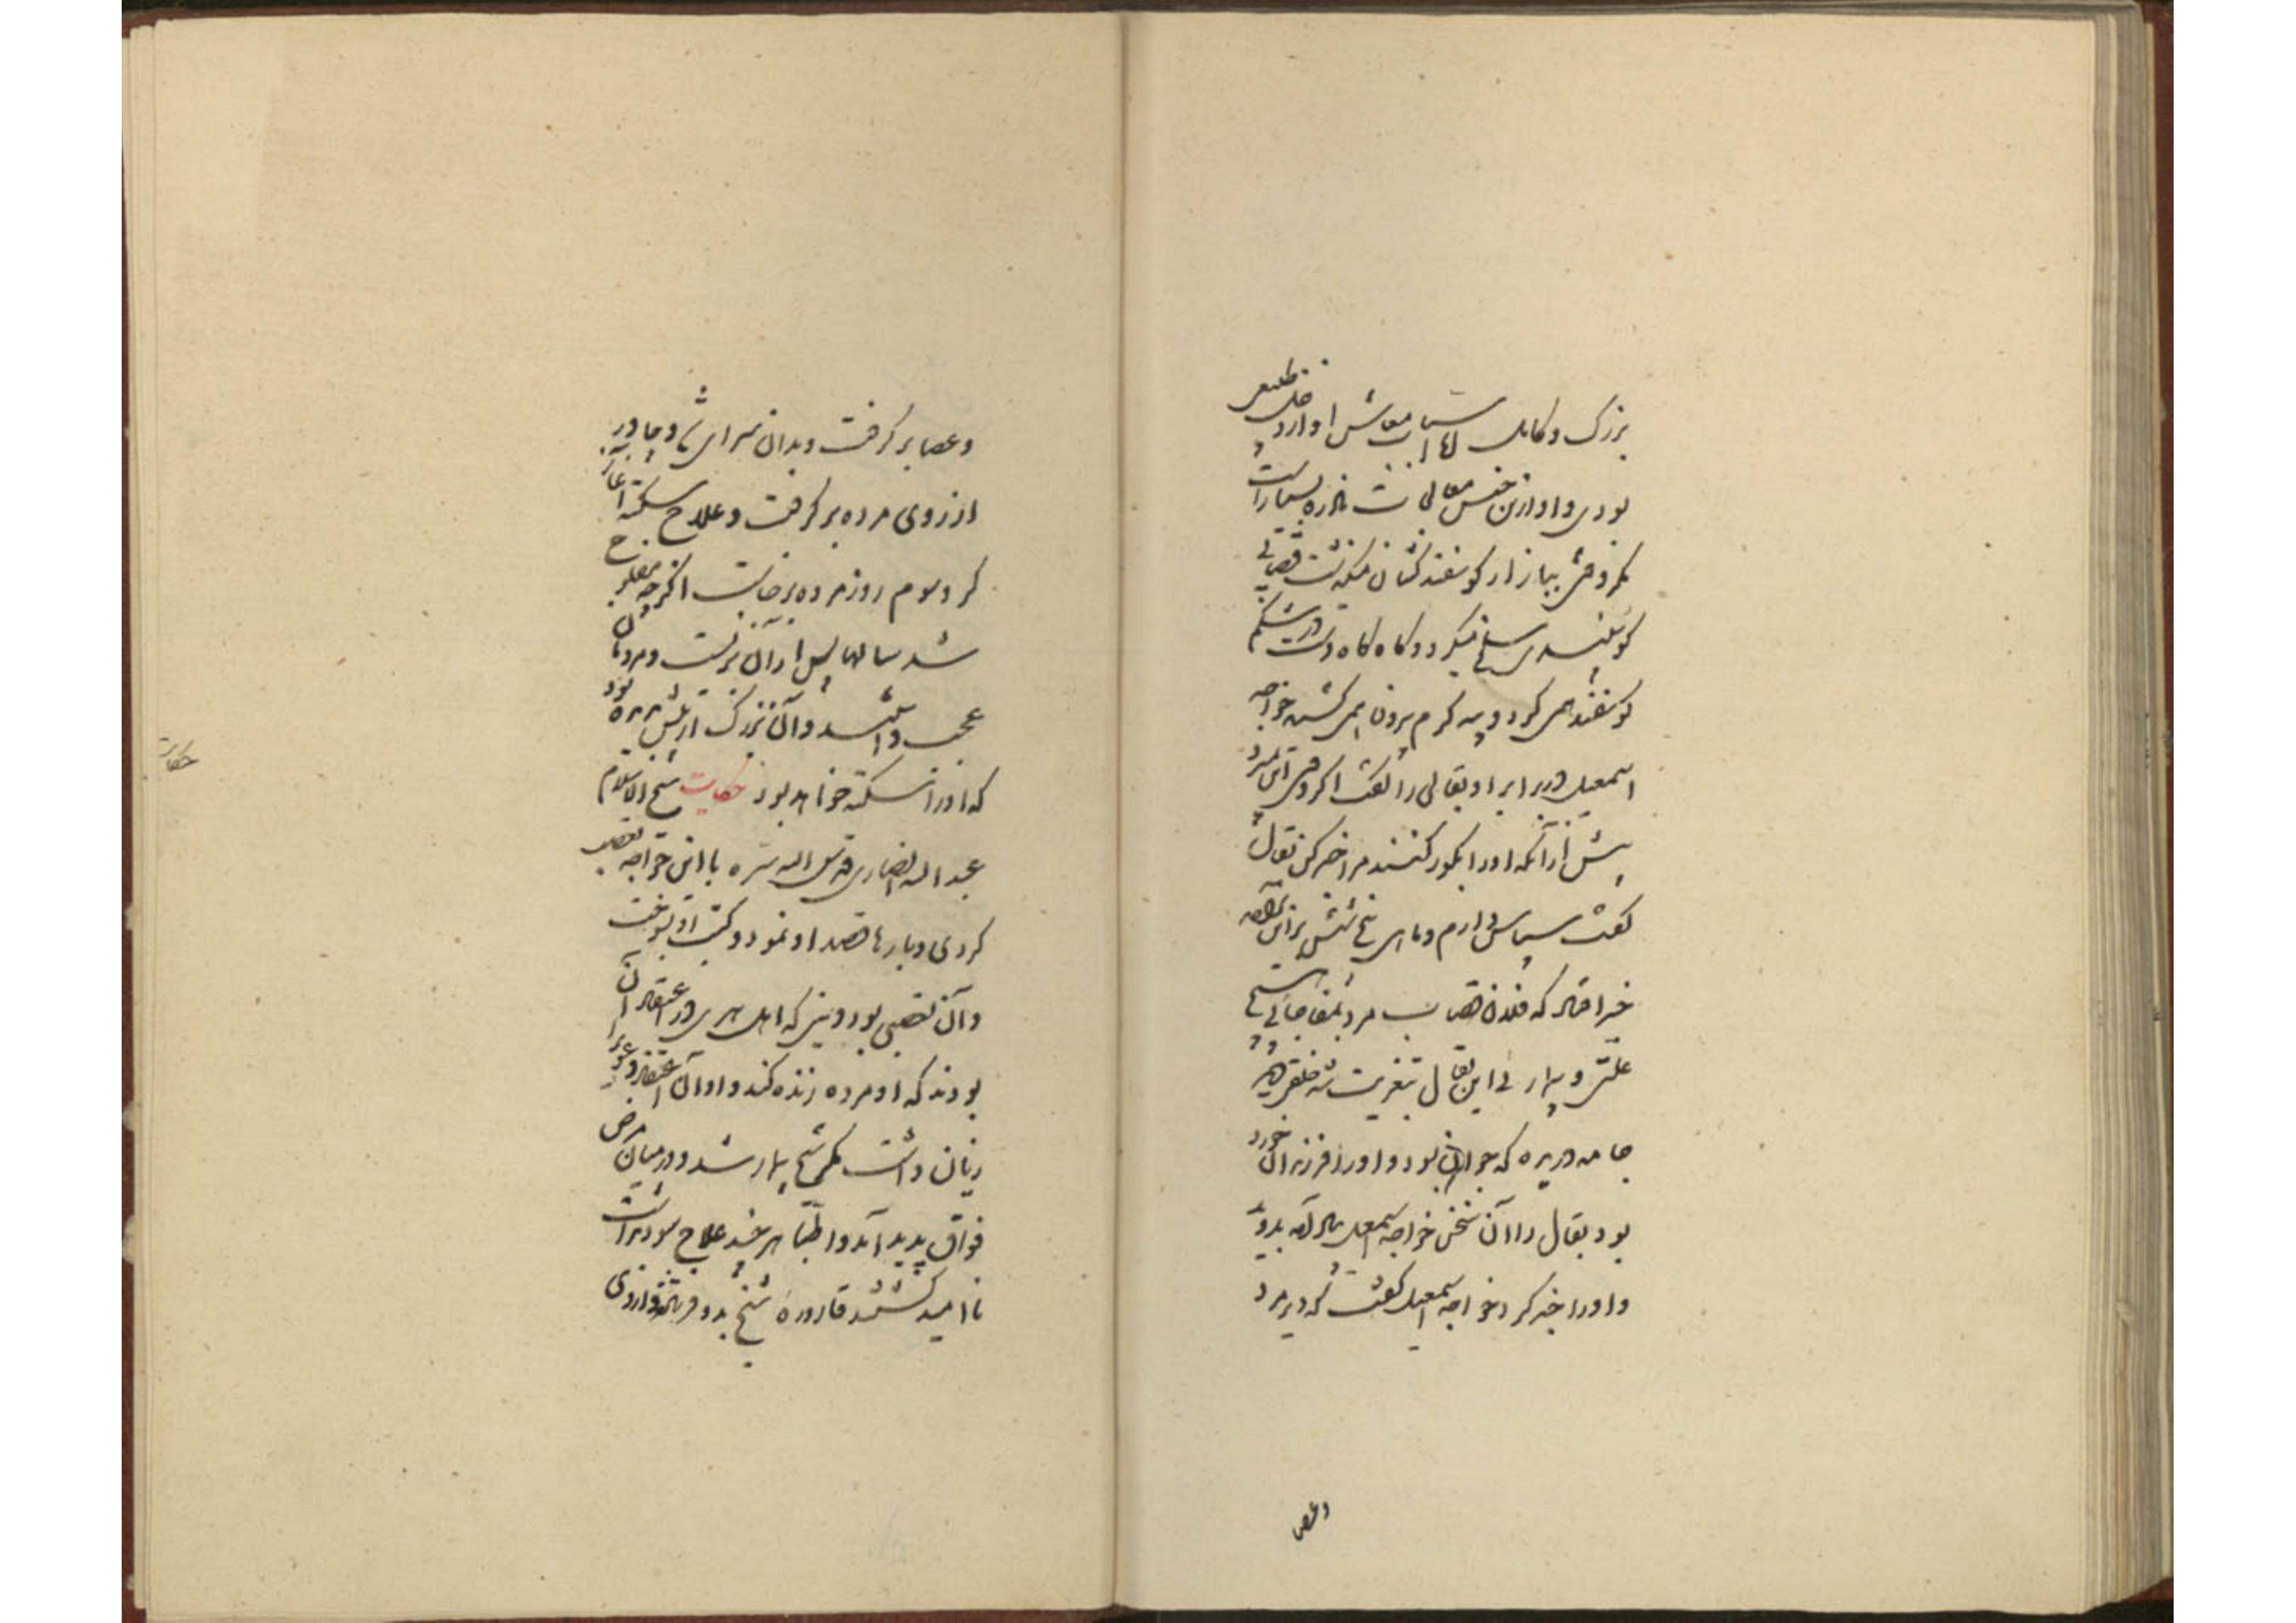 بزرگ و کامل اما اسباب معاش او از دخل طبیبی
بودی و او ازین جنس معالجات نادره بسیار است
مگر وقتی ببازار کوسفند کشان میگذشت قصابی
کوسفندی سلخ میکرد و کاه کاه دست در شکم
کوسفند همی کرد و پیه کرم برون همی کشید خواجه
اسمعیل در برابر او بقالی را گفت اگر وقتی این بمیرد
پیش از آنکه او را بگور کنند مرا خبر کن بقال
گفت سپاس دارم و ماهی پنج شش برین برآمد
خبر افتاد که فلان قصاب مرد بمفاجا بی هیچ
علتی و بیماری این بقال بتعزیت شد خلقی دید
جامه دریده که جوان بود و او را فرزندان خورد
بود بقال را آن سخن خواجه اسمعیل یاد آمد بدوید
و او را خبر کرد خواجه اسمعیل گفت که دیر مرد
و عصا
و عصا بر گرفت و بدان سرای شد و چادر
از روی مرده بر گرفت و علاج سکته آغاز
کرد سوم روز مرده برخاست اگر چه مفلوج
شد سالها پس از آن بزیست و مردمان
عجب داشتند و آن بزرگ از پیش دیده بود
که او را سکته خواهد بود حکایت شیخ الاسلام
حکایت
عبد الله انصاری قدس الله سره با این خواجه تعصب
کردی و بارها قصد او نمود و کتب او بسوخت
و آن تعصبی بود دینی که اهل هری در او اعتقاد آن
بودند که او مرده زنده کند و او آن اعتقاد و عوام را
زیان داشت مگر شیخ بیمار شد و در میان مرض
فواق پدید آمد و اطبا هر چند علاج سود نداشت
نا امید گشتند قاروره شیخ بدو فرستادند و از وی